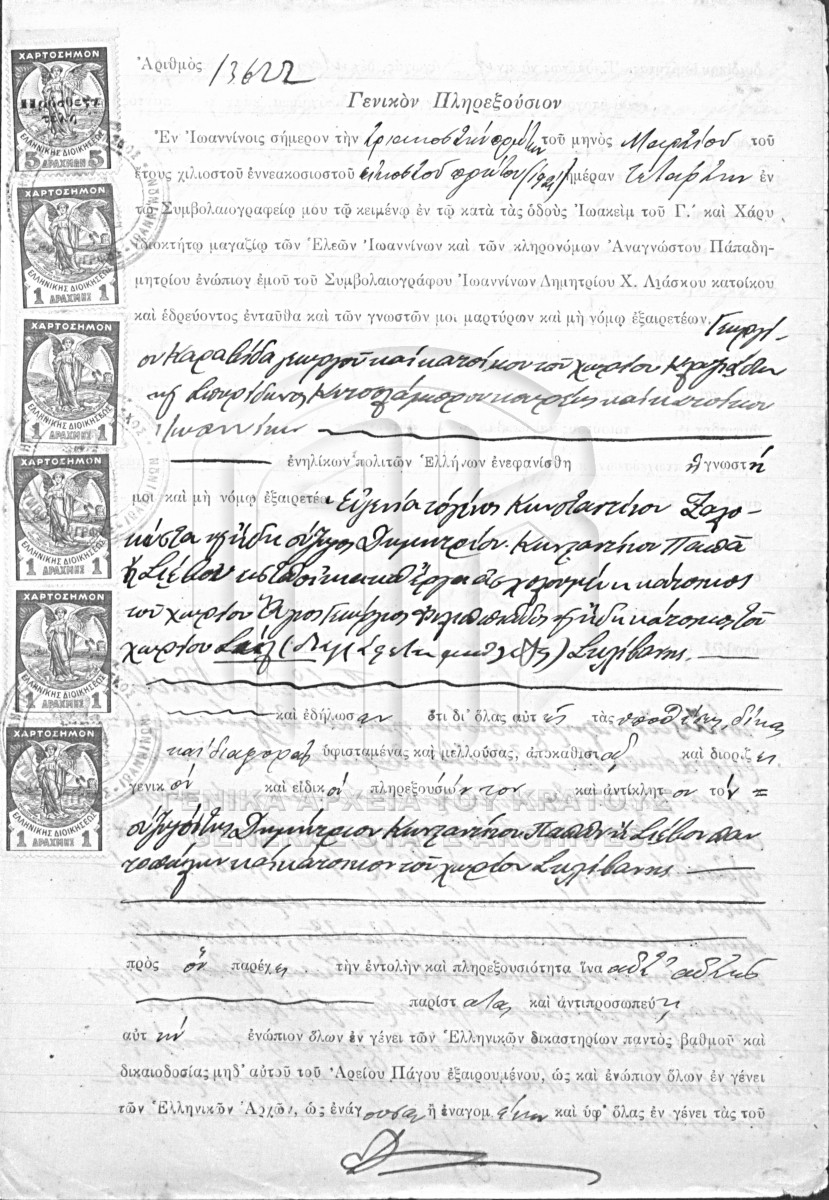 Ἀριθμὸς 13622
Γενικὸν Πληρεξούσιον
Ἐν Ἰωαννίνοις σήμερον τὴν τριακοστὴν πρώτην τοῦ μηνὸς Μαρτίου τοῦ
ἔτους χιλιοστοῦ ἐννεακοσιοστοῦ εἰκοστοῦ πρώτου (1921) ἡμέραν Τετάρτην ἐν
τῷ Συμβολαιογραφείῳ μου τῷ κειμένῳ ἐν τῷ κατὰ τὰς ὁδοὺς Ἰωακεὶμ τοῦ Γ.΄ καὶ Χάρυ
ἰδιοκτήτῳ μαγαζίῳ τῶν Ἐλεῶν Ἰωαννίνων καὶ τῶν κληρονόμων Ἀναγνώστου Πάπαδη-
μητρίου ἐνώπιον ἐμοῦ τοῦ Συμβολαιογράφου Ἰωαννίνων Δημητρίου Χ. Λιάσκου κατοίκου
καὶ ἑδρεύοντος ἐνταῦθα καὶ τῶν γνωστῶν μοι μαρτύρων καὶ μὴ νόμῳ ἐξαιρετέων. Γεωργί-
ου Καραβίδα γεωργοῦ καὶ κατοίκου τοῦ χωρίου
Σπυρίδωνος κουρέως καὶ κατοίκου
Ἰωαννίνων
ἐνηλίκων πολιτῶν Ἑλλήνων ἐνεφανίσθη ἡ γνωστή
μοι καὶ μὴ νόμῳ ἐξαιρετέα Εὐγενία τὸ γένος Κωνσταντίνου Ζαλο-
κώστα σύζυγος Δημητρίου Κωνσταντίνου Παππᾶ
ἢ Λιέβου κάτοικος
τοῦ χωρίου Ἅγιος Γεώργιος Φιλιππιάδος κάτοικος τοῦ
χωρίου
καὶ ἐδήλωσαν ὅτι δι᾽ ὅλας αὐτῆς τὰς ὑποθέσεις, δίκας
καὶ διαφορὰς ὑφισταμένας καὶ μελλούσας, ἀποκαθιστᾷ καὶ διορίζει
γενικὸν καὶ εἰδικὸν πληρεξούσιόν της καὶ ἀντίκλητον τὸν
σύζυγόν της Δημήτριον Κωνσταντίνου Παππᾶ ἢ Λιέβου παν
τοπώλην καὶ κάτοικον τοῦ χωρίου
ΓΕΝΙΚΑ ΑΡΧΕΙΑ ΤΟΥ ΚΡΑΤΟΥΣ
GENERAL STATE ARCHIVES
πρὸς ὃν παρέχει τὴν ἐντολὴν καὶ πληρεξουσιότητα ἵνα ἀντ᾽ αὐτῆς
παρίσταται καὶ ἀντιπροσωπεύῃ
αὐτὴν ἐνώπιον ὅλων ἐν γένει τῶν Ἑλληνικῶν δικαστηρίων παντὸς βαθμοῦ καὶ
δικαιοδοσίας μηδ᾽ αὐτοῦ τοῦ Ἀρείου Πάγου ἐξαιρουμένου, ὡς καὶ ἐνώπιον ὅλων ἐν γένει
τῶν Ἑλληνικῶν Ἀρχῶν, ὡς ἐνάγουσαν ἢ ἐναγομένην καὶ ὑφ᾽ ὅλας ἐν γένει τὰς τοῦ
ΧΑΡΤΟΣΗΜΟΝ
Πρόσθετα
τέλη
5 ΔΡΑΧΜΩΝ 5
ΧΑΡΤΟΣΗΜΟΝ
ΕΛΛΗΝΙΚΗΣ ΔΙΟΙΚΗΣΕΩΣ
1 ΔΡΑΧΜΗΣ 1
ΧΑΡΤΟΣΗΜΟΝ
ΕΛΛΗΝΙΚΗΣ ΔΙΟΙΚΗΣΕΩΣ
1 ΔΡΑΧΜΗΣ 1
ΧΑΡΤΟΣΗΜΟΝ
ΕΛΛΗΝΙΚΗΣ ΔΙΟΙΚΗΣΕΩΣ
1 ΔΡΑΧΜΗΣ 1
ΧΑΡΤΟΣΗΜΟΝ
ΕΛΛΗΝΙΚΗΣ ΔΙΟΙΚΗΣΕΩΣ
1 ΔΡΑΧΜΗΣ 1
ΧΑΡΤΟΣΗΜΟΝ
ΕΛΛΗΝΙΚΗΣ ΔΙΟΙΚΗΣΕΩΣ
1 ΔΡΑΧΜΗΣ 1